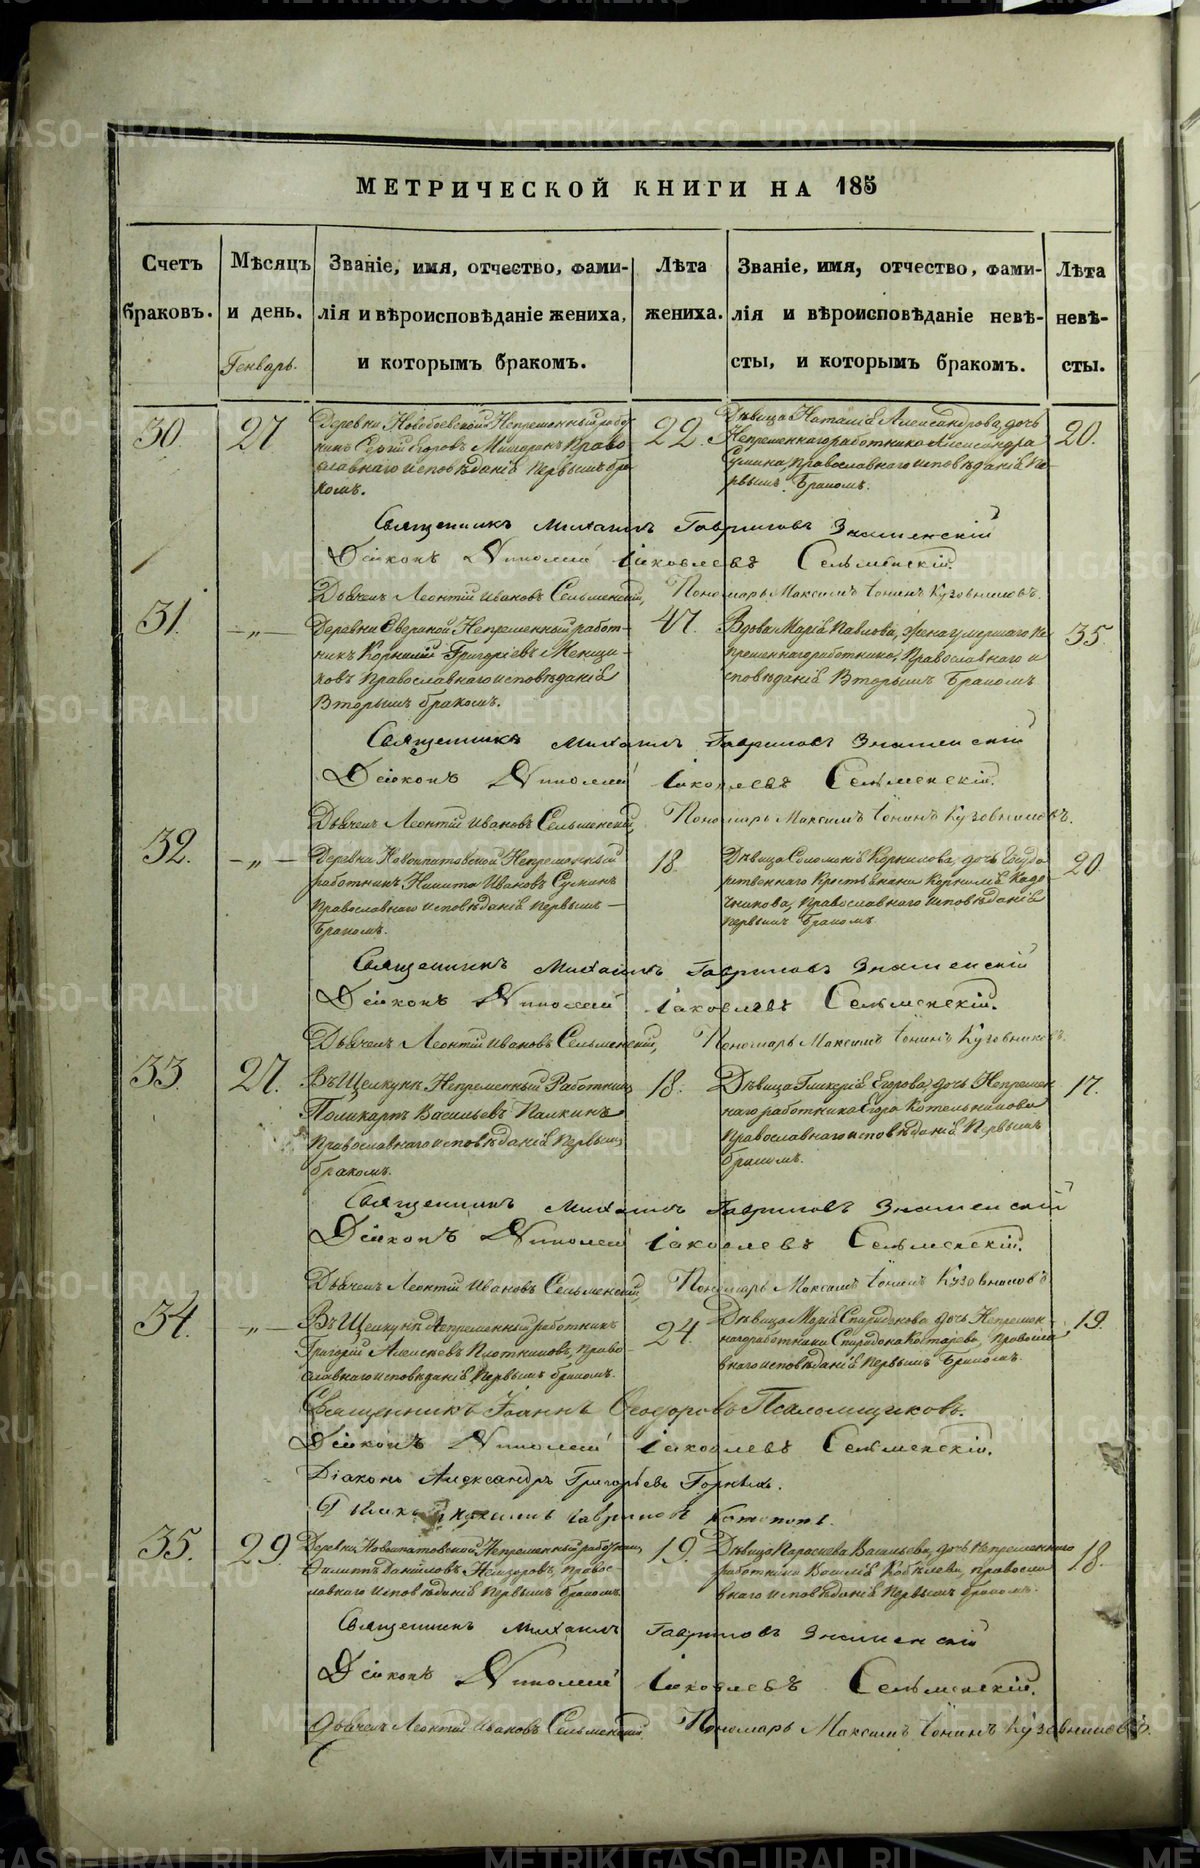 МЕТРИЧЕСКОЙ КНИГИ НА 185
Счетъ браковъ.
Мѣсяцъ и день.
Званіе, имя, отчество, фами-
лія и вѣроисповѣданіе жениха,
и которымъ бракомъ.
Лѣта
жениха.
Званіе, имя, отчество, фами-
лія и вѣроисповѣданіе невѣ-
сты, и которымъ бракомъ.
Лѣта
невѣ-
сты.
Генварь.
30. 27
Деревни Новобоевской Непременный рабо
никъ Сергий Егоровъ Право
славнаго исповѣданія первымъ бра
комъ.
22.
Дѣвица Наталія Александрова, дочь
Непременнаго работника Александра
православнаго исповѣданія пе-
рвымъ бракомъ.
20.
Священникъ Михаилъ Гавриловъ Знаменскій
Діаконъ Николай Іаковлевъ Сельменскій.
Дьячекъ Леонтій Ивановъ Сельменскій, Пономарь Максимъ Іонинъ Кузовниковъ.
31. — „ —
Деревни Непременный работ-
никъ Корнилий Григоріевъ Менщи-
ковъ Православнаго исповѣданія
Вторымъ бракомъ.
47.
Вдова Марія Павлова, жена умершаго Не
пременнаго работника, Православнаго и
сповѣданія Вторымъ Бракомъ
35.
Священникъ Михаилъ Гавриловъ Знаменскій
Діаконъ Николай Іаковлевъ Сельменскій.
Дьячекъ Леонтій Ивановъ Сельменскій, Пономарь Максимъ Іонинъ Кузовниковъ.
32. — „ —
Деревни Новоипатовской Непременный
работникъ Никита Ивановъ
Православнаго исповѣданія первымъ —
Бракомъ.
18.
Дѣвица Соломонія Корнилова, дочь Госуда
рственнаго Крестьянина Корнилія Кадо
чникова, православнаго исповѣданія
первымъ Бракомъ.
20.
Священникъ Михаилъ Гавриловъ Знаменскій
Діаконъ Николай Іаковлевъ Сельменскій.
Дьячекъ Леонтій Ивановъ Сельменскій, Пономарь Максимъ Іонинъ Кузовниковъ.
33. 27.
Въ Щелкунѣ Непременный Работникъ
Поликарпъ Васильевъ Палкинъ
Православнаго исповѣданія первымъ
бракомъ.
18.
Дѣвица Гликерія Егорова, дочь Непремен
наго работника Егора Котельникова
Православнаго исповѣданія Первымъ
бракомъ.
17.
Священникъ Михаилъ Гавриловъ Знаменскій
Діаконъ Николай Іаковлевъ Сельменскій.
Дьячекъ Леонтій Ивановъ Сельменскій, Пономарь Максимъ Іонинъ Кузовниковъ
34. — „ —
Въ Щелкунѣ Непременный работникъ
Григорій Алексѣевъ Плотниковъ, право-
славнаго исповѣданія Первымъ бракомъ.
24.
Дѣвица Марія Спиридонова дочь Непремен-
наго работника Спиридона Костарева, православ
внаго исповѣданія Первымъ Бракомъ.
19.
Священникъ Іоаннъ Ѳеодоровъ Псаломщиковъ.
Діаконъ Николай Іаковлевъ Сельменскій.
Діаконъ Александръ Григорьевъ Горныхъ.
Гавриловъ
35. 29.
Деревни Новоипатовской, Непременный работникъ
Филиппъ Даниловъ правос-
лавнаго исповѣданія первымъ Бракомъ.
19.
Дѣвица Параскева Васильева, дочь Непременнаго
работника Василія православ
внаго исповѣданія Первымъ бракомъ.
18.
Священникъ Михаилъ Гавриловъ Знаменскій
Діаконъ Николай Іаковлевъ Сельменскій.
Дьячекъ Леонтій Ивановъ Сельменскій Пономарь Максимъ Іонинъ Кузовниковъ.
METRIKI.GASO-URAL.RU